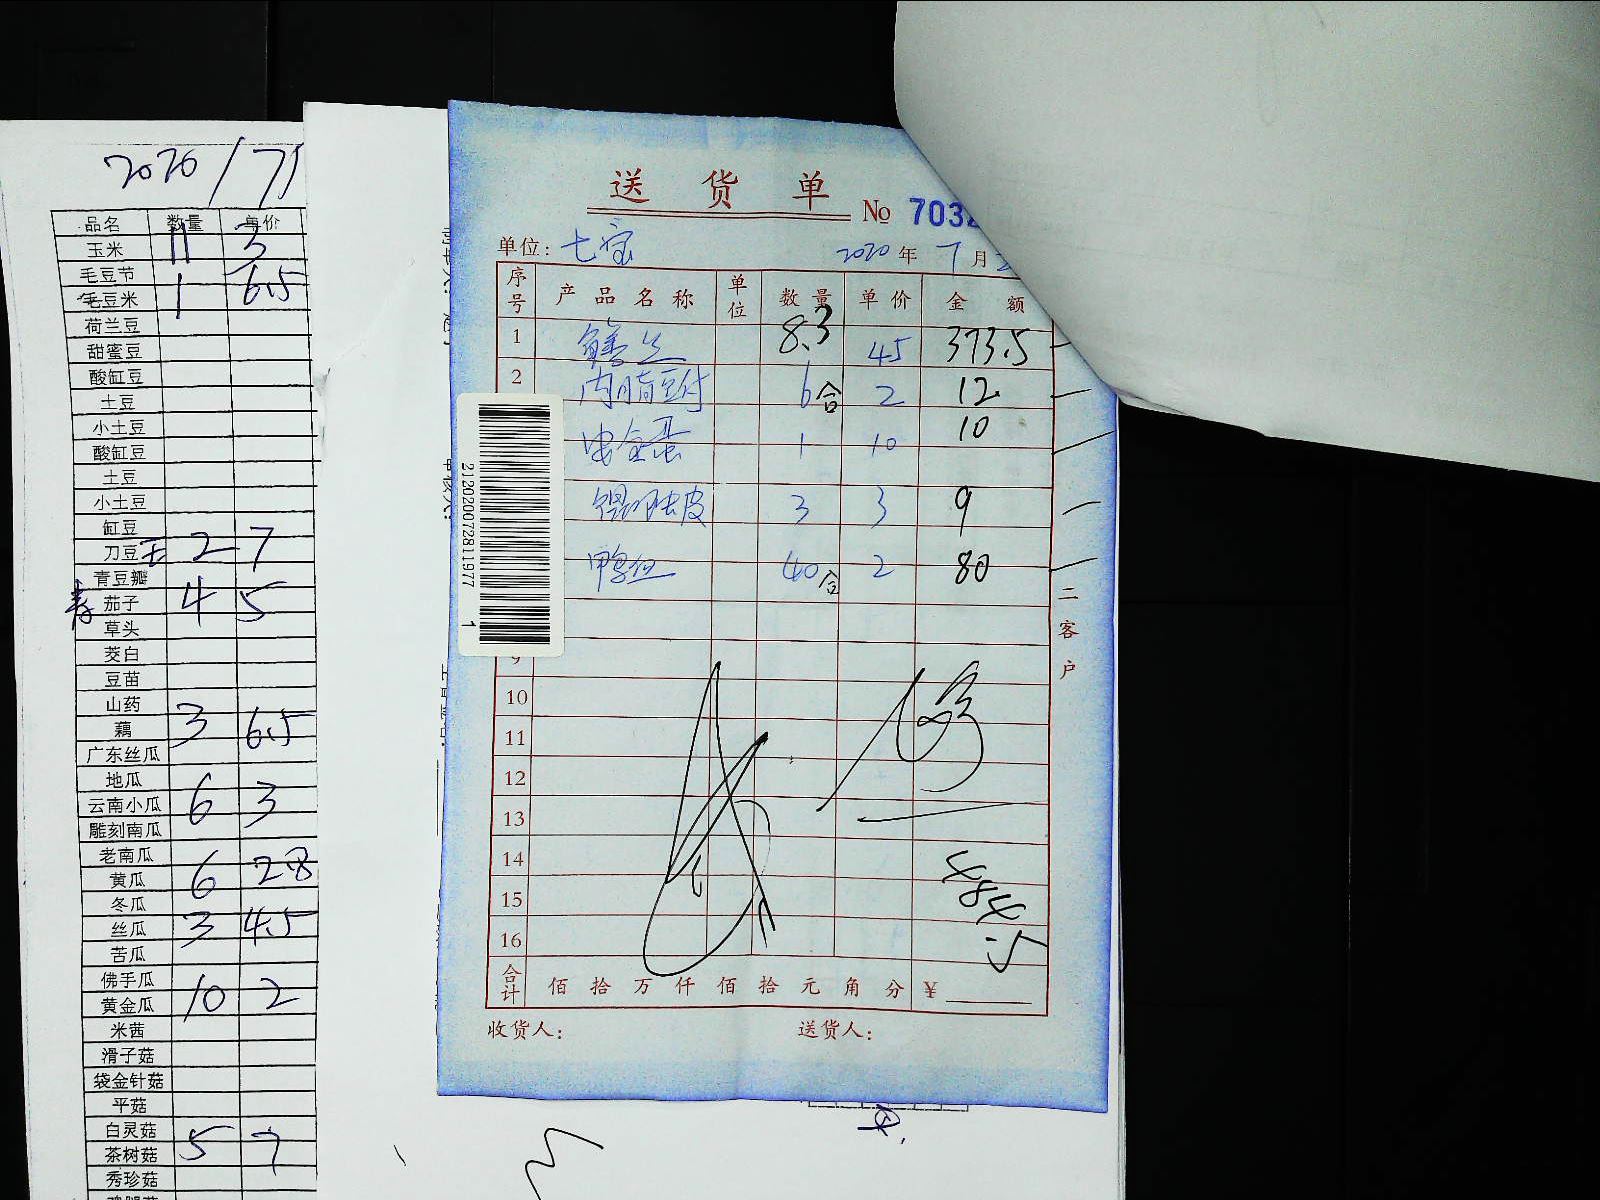 2020/7/
品名 数量 单价
玉米 11 3
毛豆节
毛豆米 1 6.5
荷兰豆
甜蜜豆
酸缸豆
土豆
小土豆
酸缸豆
土豆
小土豆
缸豆
刀豆 2 7
青豆瓣
茄子 4 5
草头
茭白
豆苗
山药
藕 3 6.5
广东丝瓜
地瓜
云南小瓜 6 3
雕刻南瓜
老南瓜
黄瓜 6 2.8
冬瓜
丝瓜 3 4.5
苦瓜
佛手瓜
黄金瓜 10 2
米茜
滑子菇
袋金针菇
平菇
白灵菇
茶树菇 5 7
秀珍菇
送货单
№ 703
单位: 七宝 2020年 7月
序号 产品名称 单位 数量 单价 金额
1 鳝丝 8.3 45 373.5
2 内脂豆付 6合 2 12
咸蛋 1 10 10
馄饨皮 3 3 9
鸭血 40合 2 80
9
10
11
12
13
14
15
16
合计 佰拾万仟佰拾元角分 ¥
收货人: 送货人:
二客户
212020072811977 1